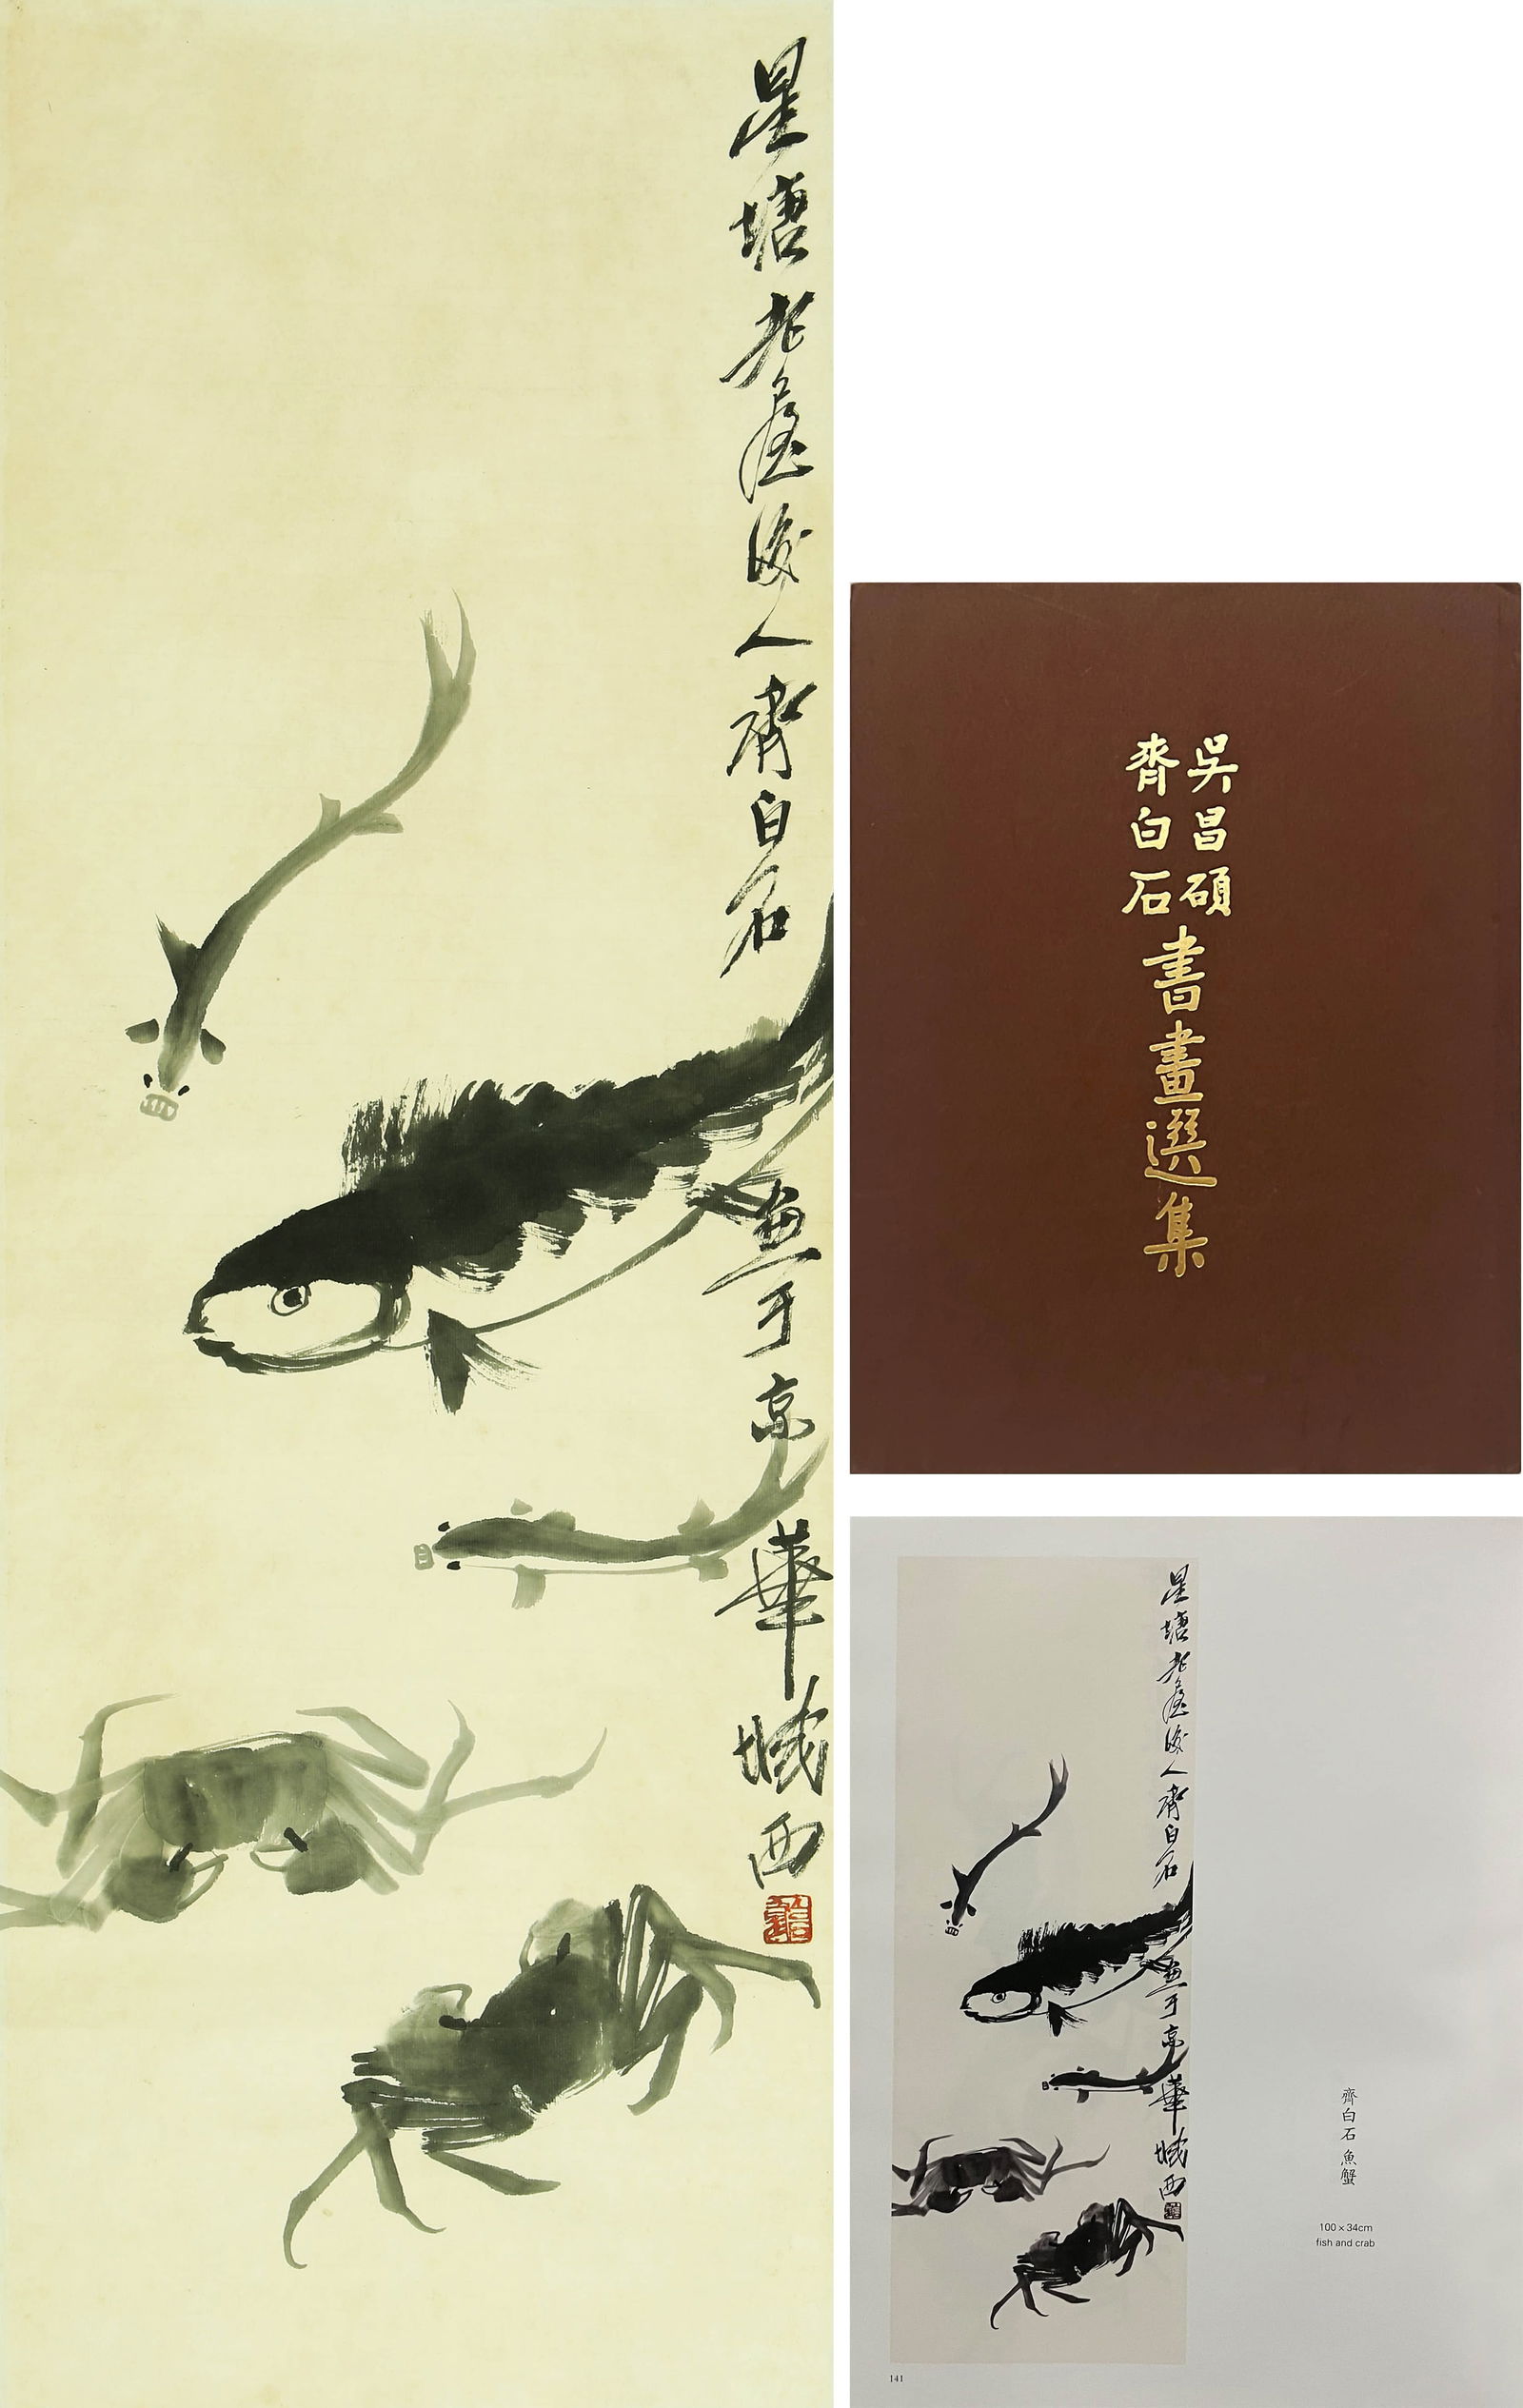 星塘老屋後人齊白石
畫于京華城西
吳昌碩
齊白石
書畫選集
星塘老屋後人齊白石
畫于京華城西
齊白石 魚蟹
100×34cm
fish and crab
141